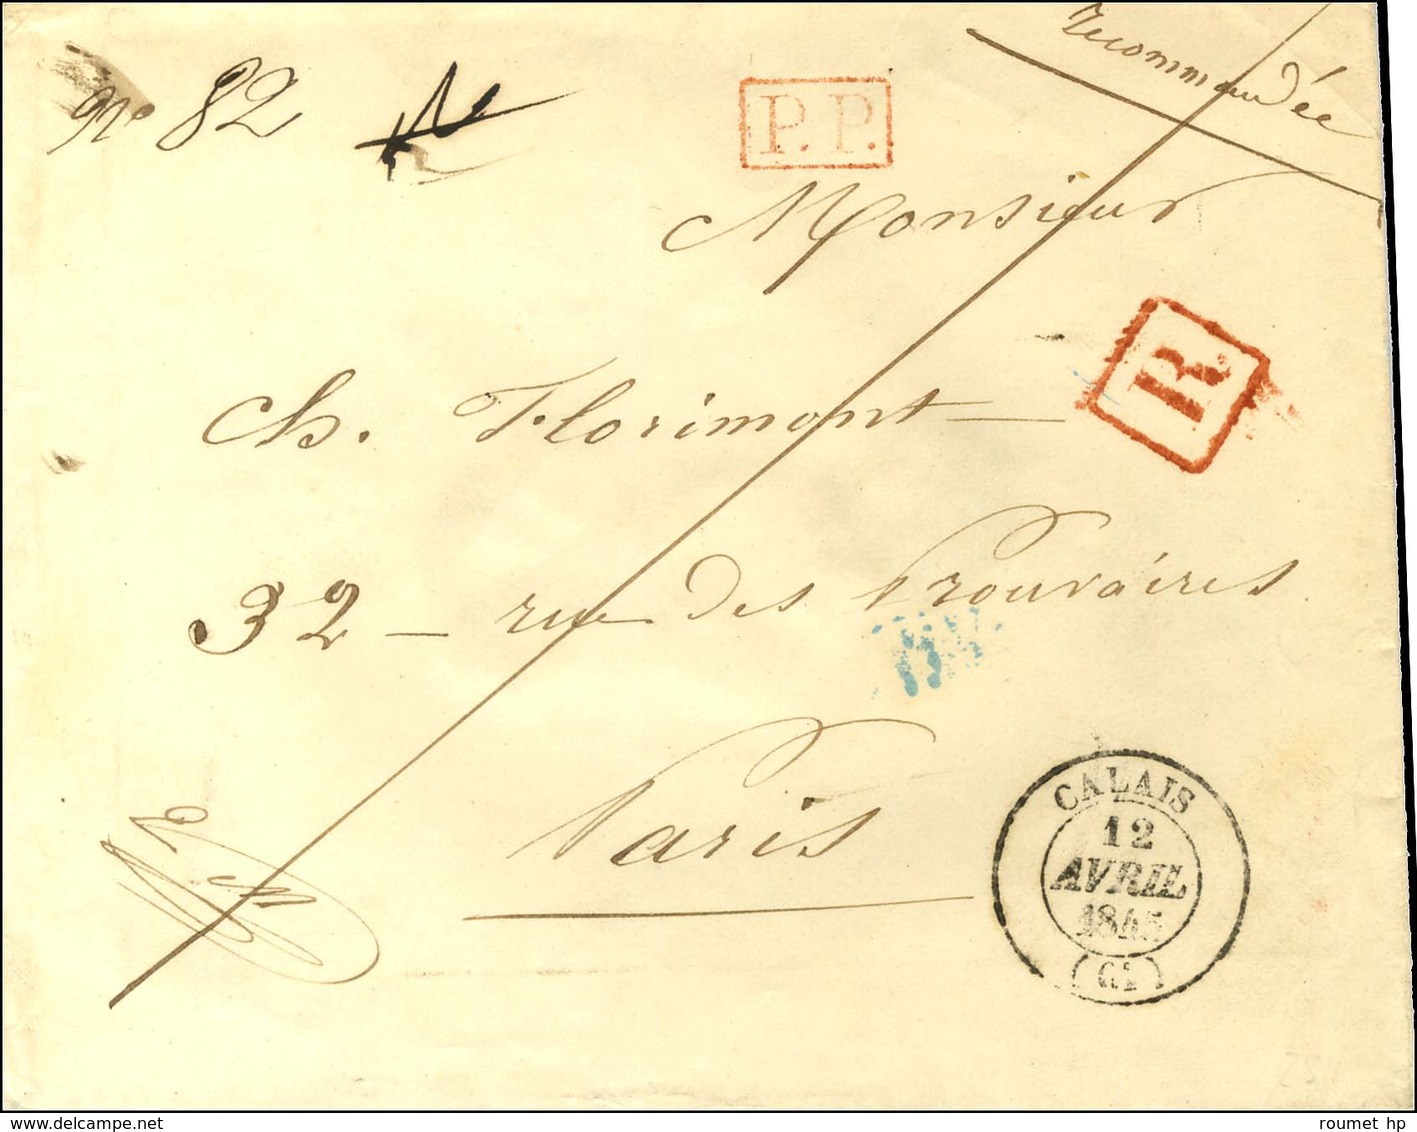 recommandée
n° 82
P.P.
Monsieur
R.
Ch. Florimont
32 - rue des Prouvaires
Paris
CALAIS
12
AVRIL
1845
(61)
roumet hp